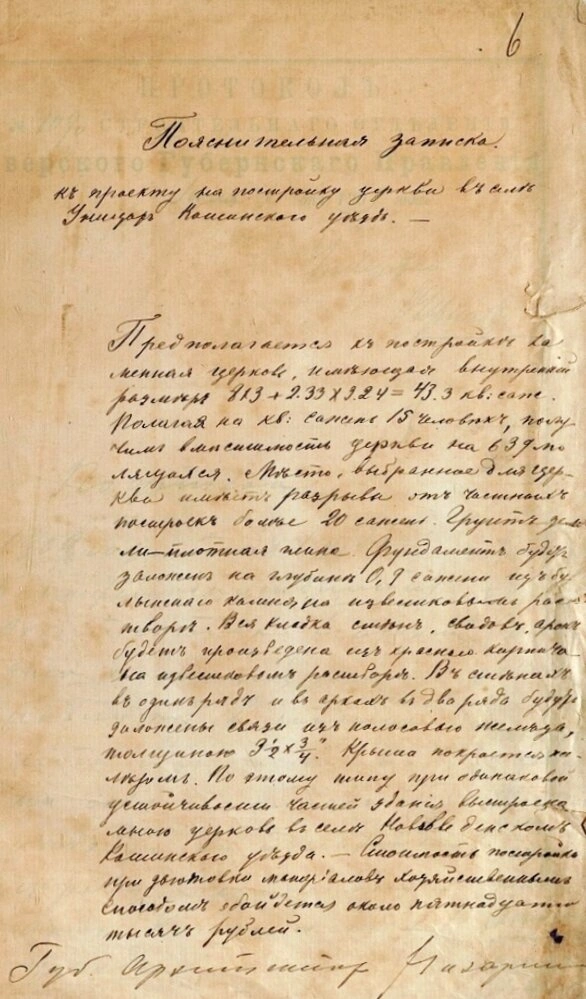 6
Пояснительная записка.
къ проекту на постройку церкви въ селѣ
Кашинскаго уѣзда. —
Предполагается къ постройкѣ ка
менная церковь, имѣющая внутренній
размѣръ 8х3 + 2.33 х 9.24 = 43.3 кв: саж.
Полагая на кв: сажень 15 человѣкъ, полу
чимъ вмѣстимость церкви на 639 мо
лящихся. Мѣсто, выбранное для цер-
кви имѣетъ разрывы отъ частныхъ
построекъ болѣе 20 сажень. Грунтъ зем
ли — плотная глина. Фундаментъ будетъ
заложенъ на глубинѣ 0,9 сажени изъ бу
лыжнаго камня на известковомъ рас
творѣ. Вся кладка стѣнъ, сводовъ, арокъ
будетъ произведена изъ краснаго кирпича
на известковомъ растворѣ. Въ стѣнахъ
въ одинъ рядъ и въ аркахъ въ два ряда будутъ
заложены связи изъ полосоваго желѣза,
толщиною 3½ х ¾". Крыша покроется же
лѣзомъ. По этому типу при одинаковой
устойчивости частей зданія выстроена
мною церковь въ селѣ
Кашинскаго уѣзда. — Стоимость постройки
при заготовкѣ матеріаловъ хозяйственнымъ
способомъ обойдется около пятнадцати
тысячъ рублей.
Губ. Архитекторъ